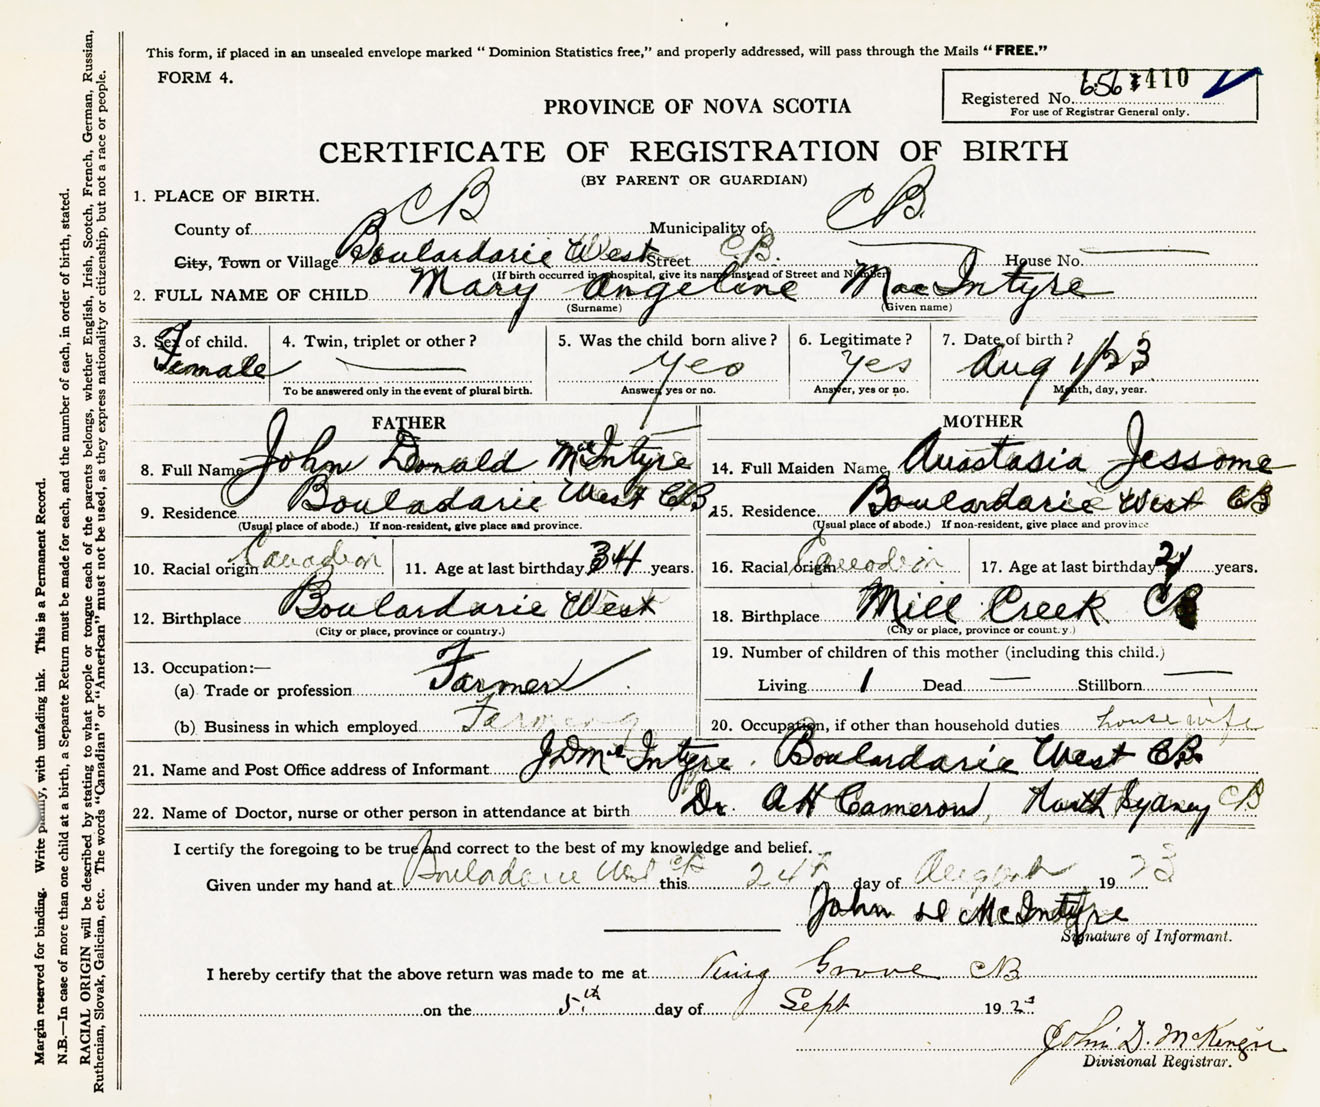 This form, if placed in an unsealed envelope marked " Dominion Statistics free," and properly addressed, will pass through the Mails " FREE."
FORM 4.
Registered No. 656 410
For use of Registrar General only.
PROVINCE OF NOVA SCOTIA
CERTIFICATE OF REGISTRATION OF BIRTH
(BY PARENT OR GUARDIAN)
1. PLACE OF BIRTH.
County of CB Municipality of CB.
City, Town or Village Boulardarie West Street C.B. House No.
(If birth occurred in a hospital, give its name instead of Street and Number)
2. FULL NAME OF CHILD Mary Angeline MacIntyre
(Surname) (Given name)
3. Sex of child. 4. Twin, triplet or other ? 5. Was the child born alive ? 6. Legitimate ? 7. Date of birth ?
Female Yes Yes Aug 1/23
To be answered only in the event of plural birth. Answer, yes or no. Answer, yes or no. Month, day, year.
FATHER MOTHER
8. Full Name John Donald McIntyre 14. Full Maiden Name Anastasia Jessome
9. Residence Bouladarie West CB 15. Residence Boulardarie West CB
(Usual place of abode.) If non-resident, give place and province. (Usual place of abode.) If non-resident, give place and province
10. Racial origin Canadian 11. Age at last birthday 34 years. 16. Racial origin Canadian 17. Age at last birthday years.
12. Birthplace Boulardarie West 18. Birthplace Mill Creek CB
(City or place, province or country.) (City or place, province or country.)
13. Occupation:— 19. Number of children of this mother (including this child.)
(a) Trade or profession Farmer Living 1 Dead — Stillborn —
(b) Business in which employed Farming 20. Occupation, if other than household duties housewife
21. Name and Post Office address of Informant JD McIntyre. Boulardarie West CB.
22. Name of Doctor, nurse or other person in attendance at birth Dr. A H Cameron, North Sydney CB
I certify the foregoing to be true and correct to the best of my knowledge and belief.
Given under my hand at Boulardarie West CB this 24th day of August 1923
John D McIntyre
Signature of Informant.
I hereby certify that the above return was made to me at Grove CB
on the 5th day of Sept 192
John D. McKenzie
Divisional Registrar.
Margin reserved for binding. Write plainly, with unfading ink. This is a Permanent Record.
N.B.—In case of more than one child at a birth, a Separate Return must be made for each, and the number of each, in order of birth, stated.
RACIAL ORIGIN will be described by stating to what people or tongue each of the parents belongs, whether English, Irish, Scotch, French, German, Russian,
Ruthenian, Slovak, Galician, etc. The words "Canadian" or "American" must not be used, as they express nationality or citizenship, but not a race or people.